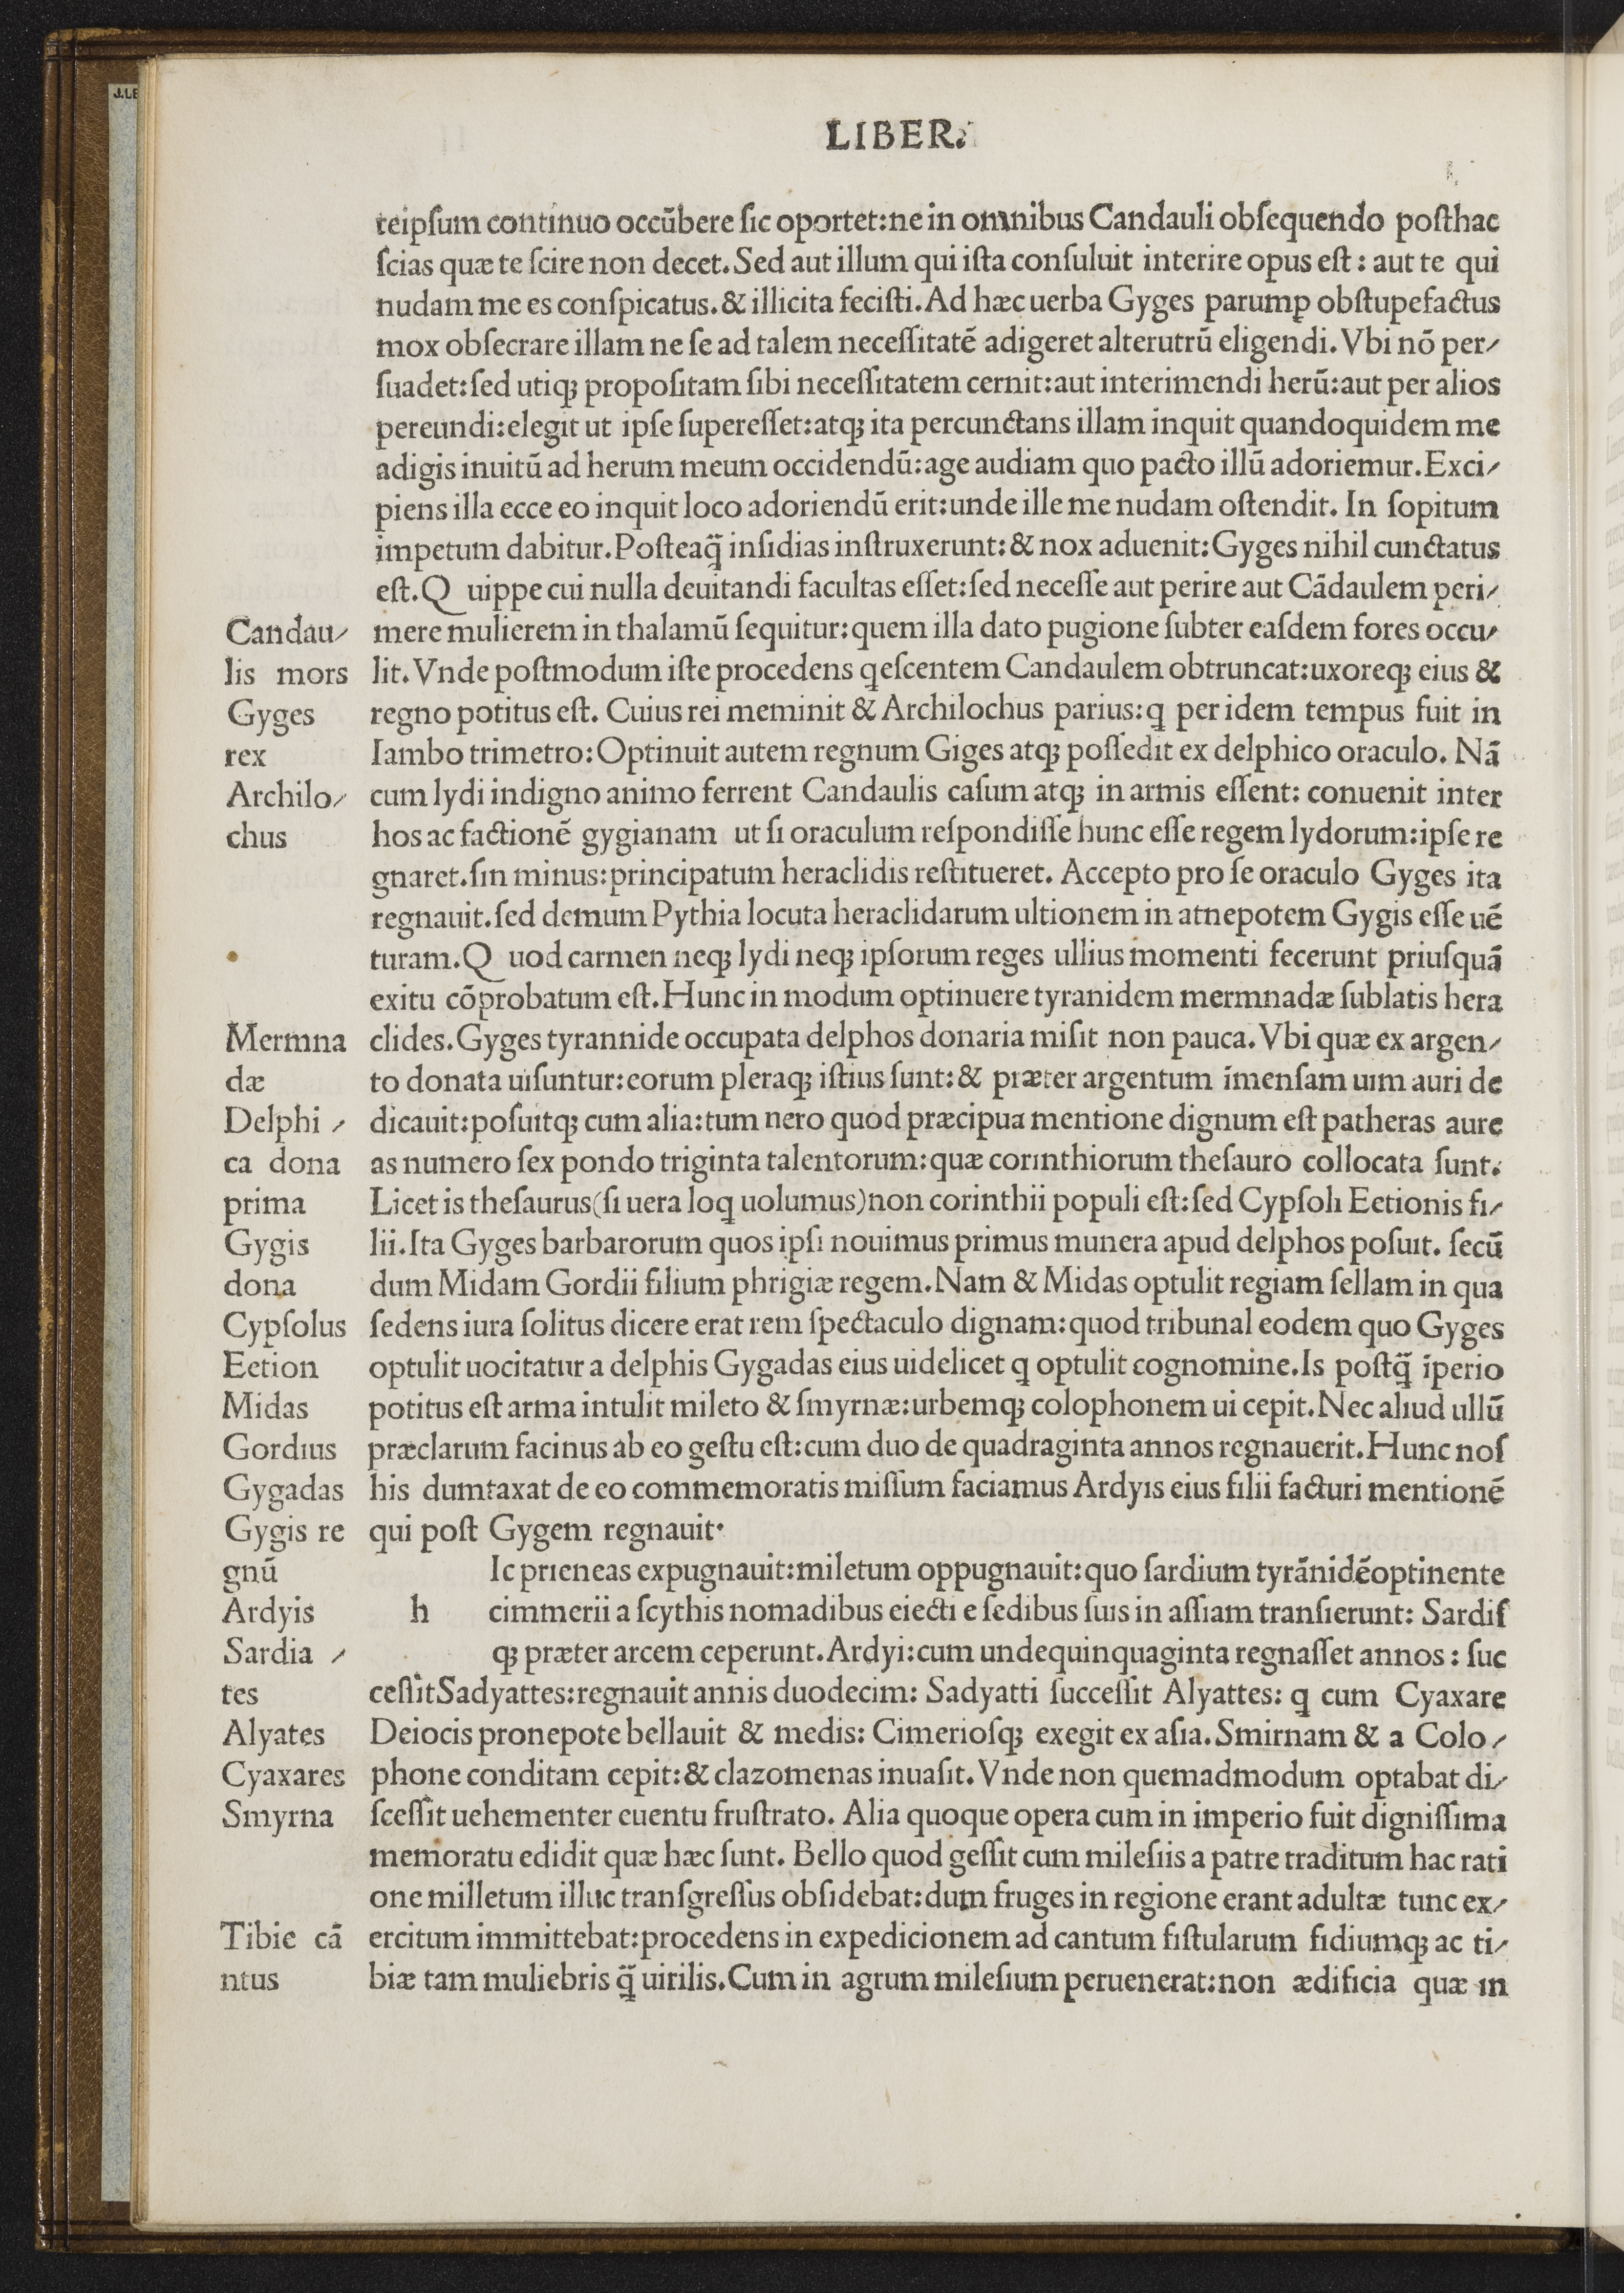 LIBER.
teipſum continuo occūbere ſic oportet:ne in omnibus Candauli obſequendo poſthac
ſcias quæ te ſcire non decet. Sed aut illum qui iſta conſuluit interire opus eſt: aut te qui
nudam me es conſpicatus. & illicita feciſti. Ad hæc uerba Gyges parumꝑ obſtupefactus
mox obſecrare illam ne ſe ad talem neceſſitatē adigeret alterutrū eligendi. Vbi nō per⸗
ſuadet:ſed utiqꝫ propoſitam ſibi neceſſitatem cernit:aut interimendi herū:aut per alios
pereundi:elegit ut ipſe ſupereſſet:atqꝫ ita percunctans illam inquit quandoquidem me
adigis inuitū ad herum meum occidendū:age audiam quo pacto illū adoriemur. Exci⸗
piens illa ecce eo inquit loco adoriendū erit:unde ille me nudam oſtendit. In ſopitum
impetum dabitur. Poſteaq̄ inſidias inſtruxerunt:& nox aduenit:Gyges nihil cunctatus
eſt. Q uippe cui nulla deuitandi facultas eſſet:ſed neceſſe aut perire aut Cādaulem peri⸗
Candau⸗ mere mulierem in thalamū ſequitur:quem illa dato pugione ſubter eaſdem fores occu⸗
lis mors lit. Vnde poſtmodum iſte procedens qeſcentem Candaulem obtruncat:uxoreqꝫ eius &
Gyges regno potitus eſt. Cuius rei meminit & Archilochus parius:q per idem tempus fuit in
rex Iambo trimetro:Optinuit autem regnum Giges atqꝫ poſſedit ex delphico oraculo. Nā
Archilo⸗ cum lydi indigno animo ferrent Candaulis caſum atqꝫ in armis eſſent: conuenit inter
chus hos ac factionē gygianam ut ſi oraculum reſpondiſſe hunc eſſe regem lydorum:ipſe re
gnaret. ſin minus:principatum heraclidis reſtitueret. Accepto pro ſe oraculo Gyges ita
regnauit. ſed demum Pythia locuta heraclidarum ultionem in atnepotem Gygis eſſe uē
turam. Q uod carmen neqꝫ lydi neqꝫ ipſorum reges ullius momenti fecerunt priuſquā
exitu cōprobatum eſt. Hunc in modum optinuere tyranidem mermnadæ ſublatis hera
Mermna clides. Gyges tyrannide occupata delphos donaria miſit non pauca. Vbi quæ ex argen⸗
dæ to donata uiſuntur:eorum pleraqꝫ iſtius ſunt:& præter argentum īmenſam uim auri de
Delphi ⸗ dicauit:poſuitqꝫ cum alia:tum nero quod præcipua mentione dignum eſt patheras aure
ca dona as numero ſex pondo triginta talentorum:quæ corinthiorum theſauro collocata ſunt.
prima Licet is theſaurus(ſi uera loq uolumus)non corinthii populi eſt:ſed Cypſoli Eetionis fi⸗
Gygis lii. Ita Gyges barbarorum quos ipſi nouimus primus munera apud delphos poſuit. ſecū
dona dum Midam Gordii filium phrigiæ regem. Nam & Midas optulit regiam ſellam in qua
Cypſolus ſedens iura ſolitus dicere erat rem ſpectaculo dignam:quod tribunal eodem quo Gyges
Eetion optulit uocitatur a delphis Gygadas eius uidelicet q optulit cognomine. Is poſtq̄ īperio
Midas potitus eſt arma intulit mileto & ſmyrnæ:urbemqꝫ colophonem ui cepit. Nec aliud ullū
Gordius præclarum facinus ab eo geſtu eſt:cum duo de quadraginta annos regnauerit. Hunc noſ
Gygadas his dumtaxat de eo commemoratis miſſum faciamus Ardyis eius filii facturi mentionē
Gygis re qui poſt Gygem regnauit·
gnū Ic prieneas expugnauit:miletum oppugnauit:quo ſardium tyrānidēoptinente
Ardyis h cimmerii a ſcythis nomadibus eiecti e ſedibus ſuis in aſſiam tranſierunt: Sardiſ
Sardia ⸗ qꝫ præter arcem ceperunt. Ardyi:cum undequinquaginta regnaſſet annos: ſuc
tes ceſſitSadyattes:regnauit annis duodecim: Sadyatti ſucceſſit Alyattes: q cum Cyaxare
Alyates Deiocis pronepote bellauit & medis: Cimerioſqꝫ exegit ex aſia. Smirnam & a Colo⸗
Cyaxares phone conditam cepit:& clazomenas inuaſit. Vnde non quemadmodum optabat di⸗
Smyrna ſceſſit uehementer euentu fruſtrato. Alia quoque opera cum in imperio fuit digniſſima
memoratu edidit quæ hæc ſunt. Bello quod geſſit cum mileſiis a patre traditum hac rati
one milletum illuc tranſgreſſus obſidebat:dum fruges in regione erant adultæ tunc ex⸗
Tibie cā ercitum immittebat:procedens in expedicionem ad cantum fiſtularum fidiumqꝫ ac ti⸗
ntus biæ tam muliebris q̄ uirilis. Cum in agrum mileſium peruenerat:non ædificia quæ in